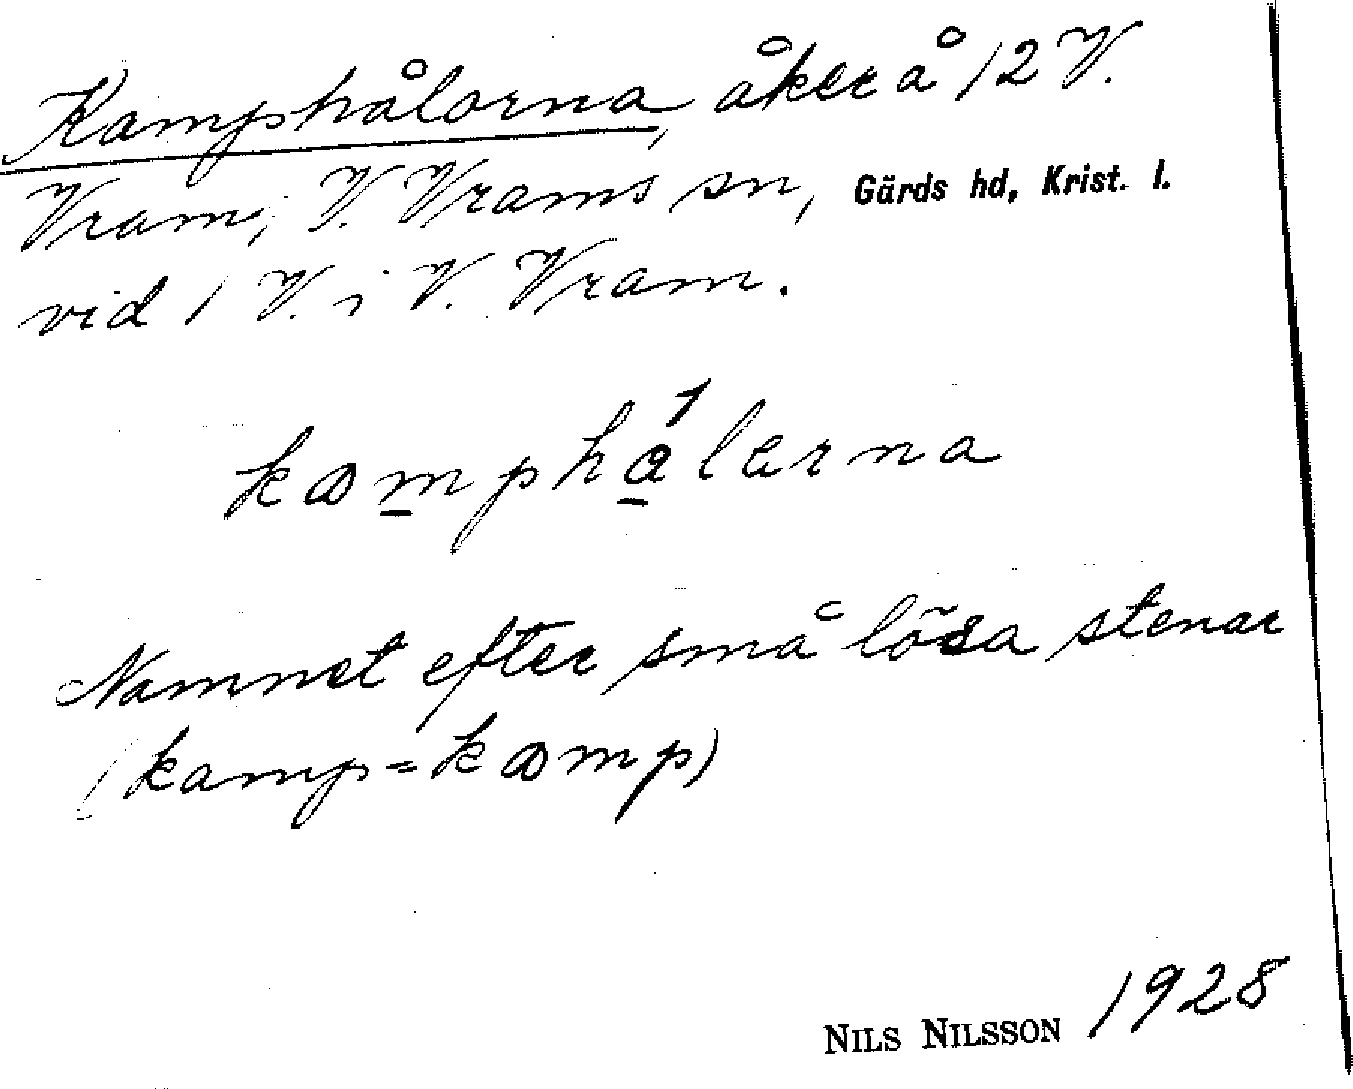 Kamphålorna, åker å 12 V.
Vram, V. Vrams sn, Gärds hd, Krist. l.
vid 1 V. i V. Vram.
kamphålerna
Namnet efter små lösa stenar
(kamp=kamp)
NILS NILSSON 1928